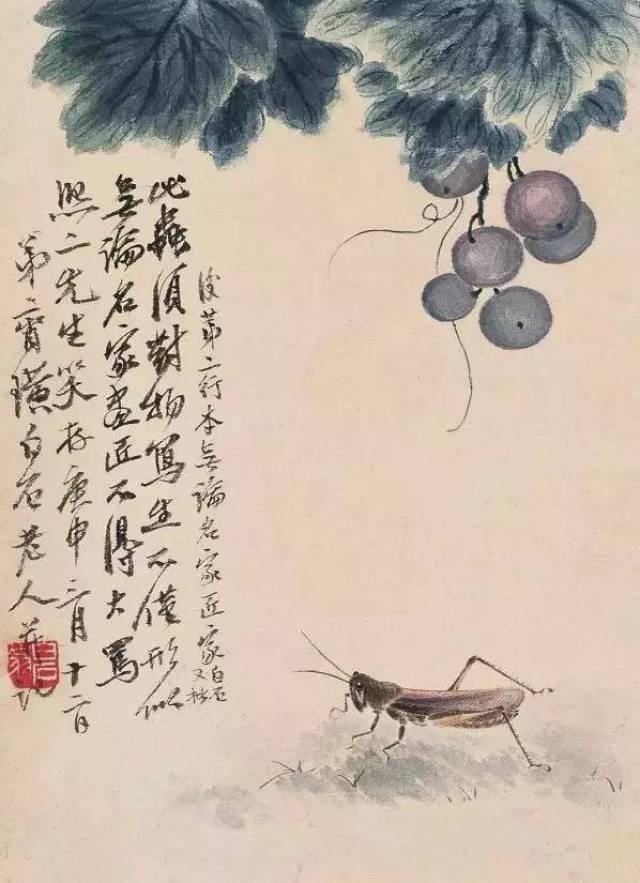 此蟲須對物寫生不僅形似
無論名家畫匠不得大罵
熙二先生笑存庚申三月十二日
弟齊璜白石老人并記
後第二行本無論名家匠家
白石